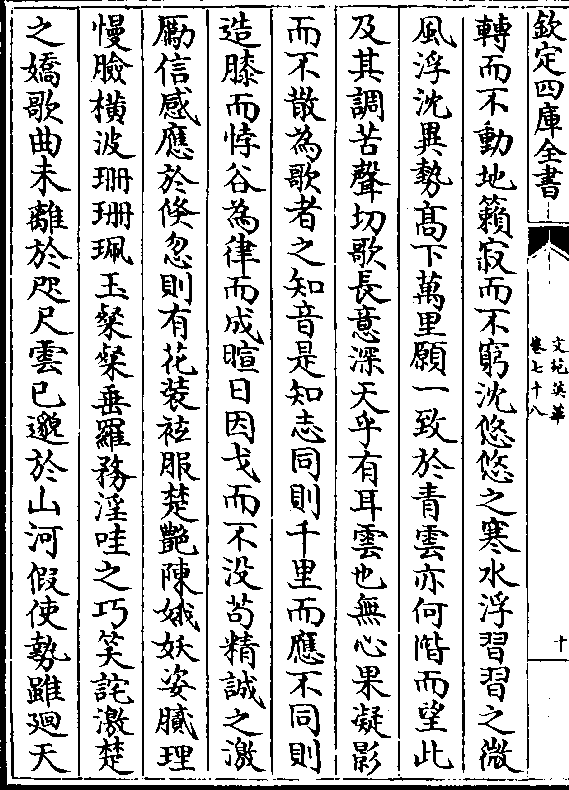 欽定四庫全書
文苑英華
卷七十八
十
轉而不動地籟寂而不窮沈悠悠之寒水浮習習之微
風浮沈異勢高下萬里願一致於青雲亦何階而望此
及其調苦聲切歌長意深天乎有耳雲也無心果凝影
而不散為歌者之知音是知志同則千里而應不同則
造膝而悖谷為律而成暄日因戈而不没茍精誠之激
勵信感應於倏忽則有花装袨服楚艷陳娥妖姿膩理
慢臉橫波珊珊珮玉粲粲垂羅務淫哇之巧笑詫激楚
之嬌歌曲未離於咫尺雲已邈於山河假使勢雖廻天